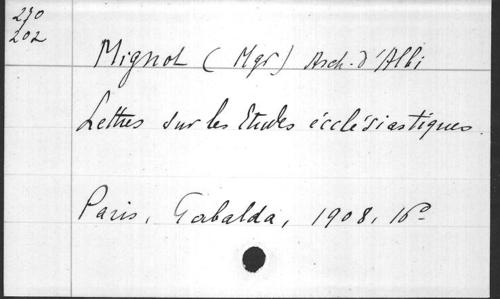 270
202
Mignot (Mgr) Arch. d'Albi
Lettres sur les Etudes écclésiastiques.
Paris, Gabalda, 1908, 16º